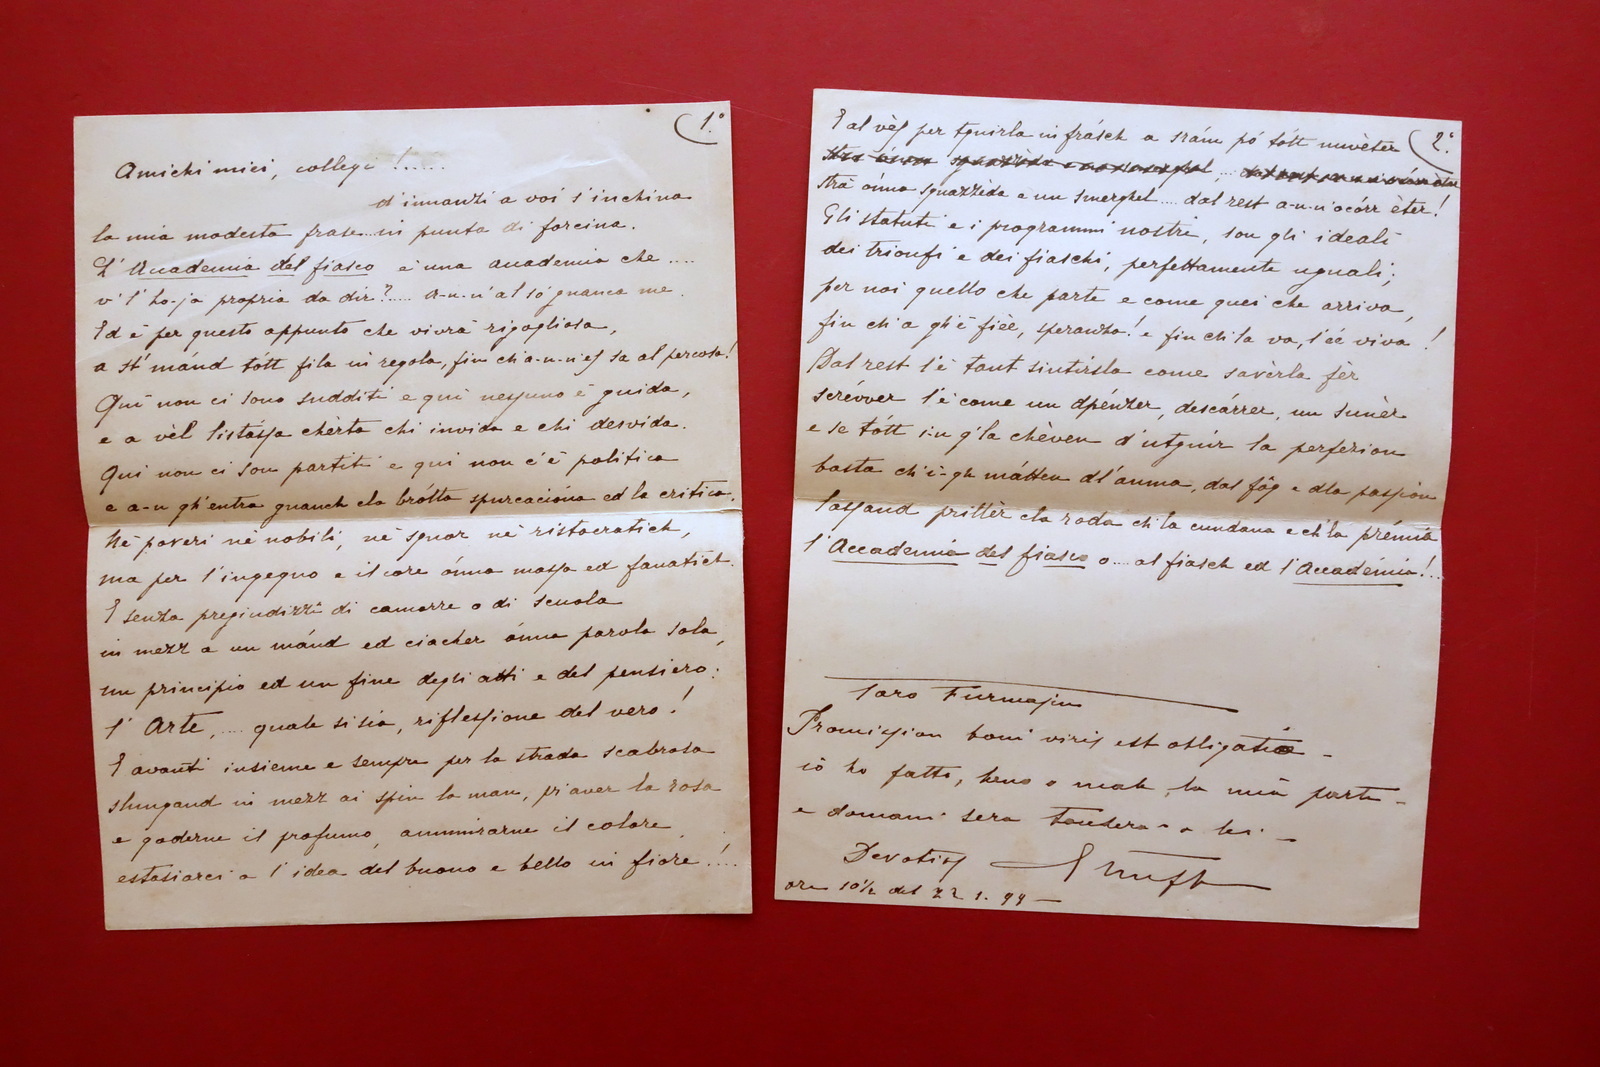 1.°
Amichi miei, collegi !......
d'innanzi a voi s'inchina
la mia modesta frase in punta di forcina.
L'Accademia del fiasco è una accademia che ....
v'l'ho-ja propria da dir?.... a-n-n'al só gnanca me.
Ed è per questo appunto che vivrà rigogliosa,
a st'mánd tótt fila in regola, fin ch'a-n-n'es sa al percosa!
Qui non ci sono sudditi e qui nessuno è guida,
e a vèl l'istassa chèrta chi invida e chi desvida.
Qui non ci son partiti e qui non c'è politica
e a-n gh'entra gnanch cla brótta spurcacióna ed la critica.
Nè poveri nè nobili, nè sgnor nè ristocratich,
ma per l'ingegno e il core ónna massa ed fanatich.
E senza pregiudizzi di camorre o di scuola
in mezz a un mánd ed ciacher ónna parola sola,
un principio ed un fine degli atti e del pensiero:
l'Arte, .... quale si sia, riflessione del vero!
E avanti insieme e sempre per la strada scabrosa
slungand in mezz ai spin la man, pr'aver la rosa
e goderne il profumo, ammirarne il colore,
estasiarci a l'idea del buono e bello in fiore!....
2.°
E al vès per tgnirla in frásch a srám pó tótt nuvèter
strà ónna sguazzèda e un smerghel.... dal rest a-n-n'ocórr èter!
Gli statuti e i programmi nostri, son gli ideali
dei trionfi e dei fiaschi, perfettamente uguali;
per noi quello che parte e come quei che arriva,
fin ch'a gh'è fièe, speranza! e fin ch'la va, l'éé viva!
Dal rest l'è tant sintirsla come savèrla fèr
scrévver l'è come un dpénzer, descórrer, un sunèr
e se tótt in g'la chèven d'utgnir la perfezion
basta ch'i-gh mátten dl'anma, dal fôg e dla passiòn
lassand prillèr cla roda ch'la cundana e ch'la prémia
l'Accademia del fiasco o .... al fiasch ed l'Accadémia!...
Promission boni viris est obligatio -
iò ho fatto, bene o male, la mia parte -
e domani sera a lei -
Devotiss
ore 10½ del 22 1. 99 -